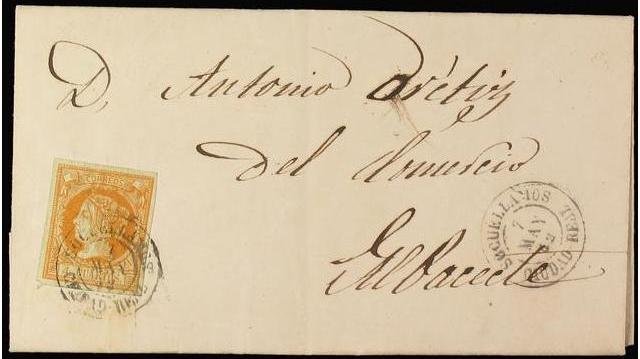 D. Antonio
del Comercio
Albacete
CORREOS
SOCUELLAMOS
7
MAY
62
CIUDAD REAL